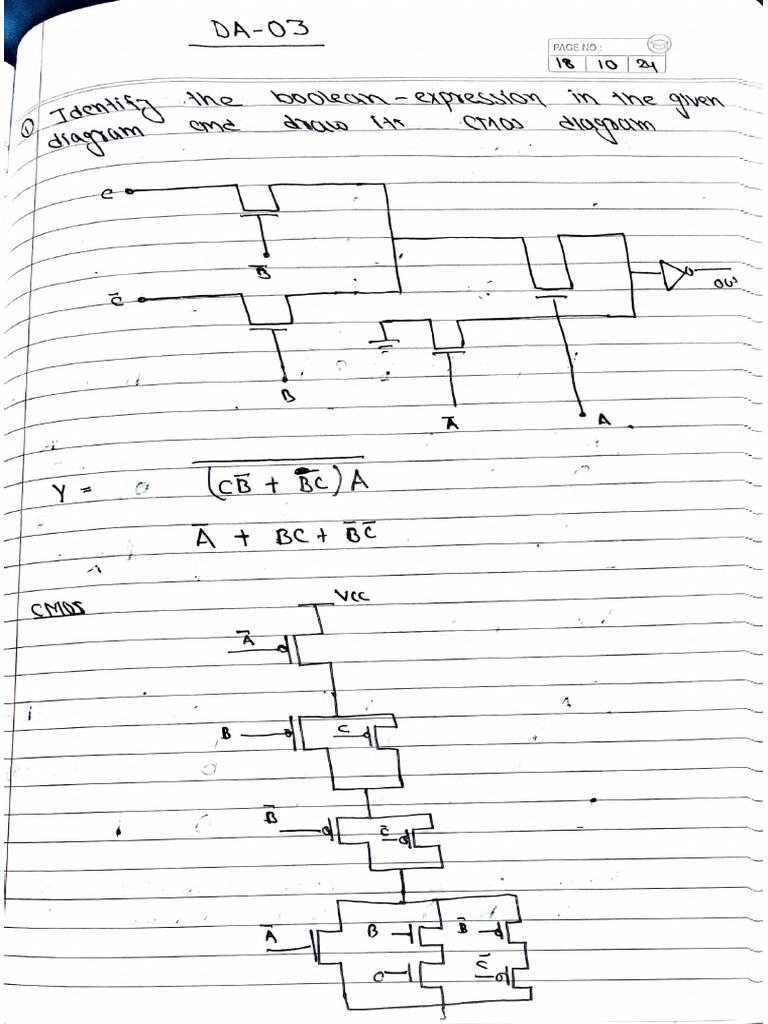 DA-03
PAGE NO :
18 10 24
① Identify the boolean-expression in the given
diagram and draw its CMOS diagram
C
B̅
C̅
out
B
A̅
A
Y = (CB̅ + B̅C̅)A
A̅ + BC + B̅C̅
CMOS
VCC
A̅
B C
B̅ C̅
A̅ B B̅
C C̅